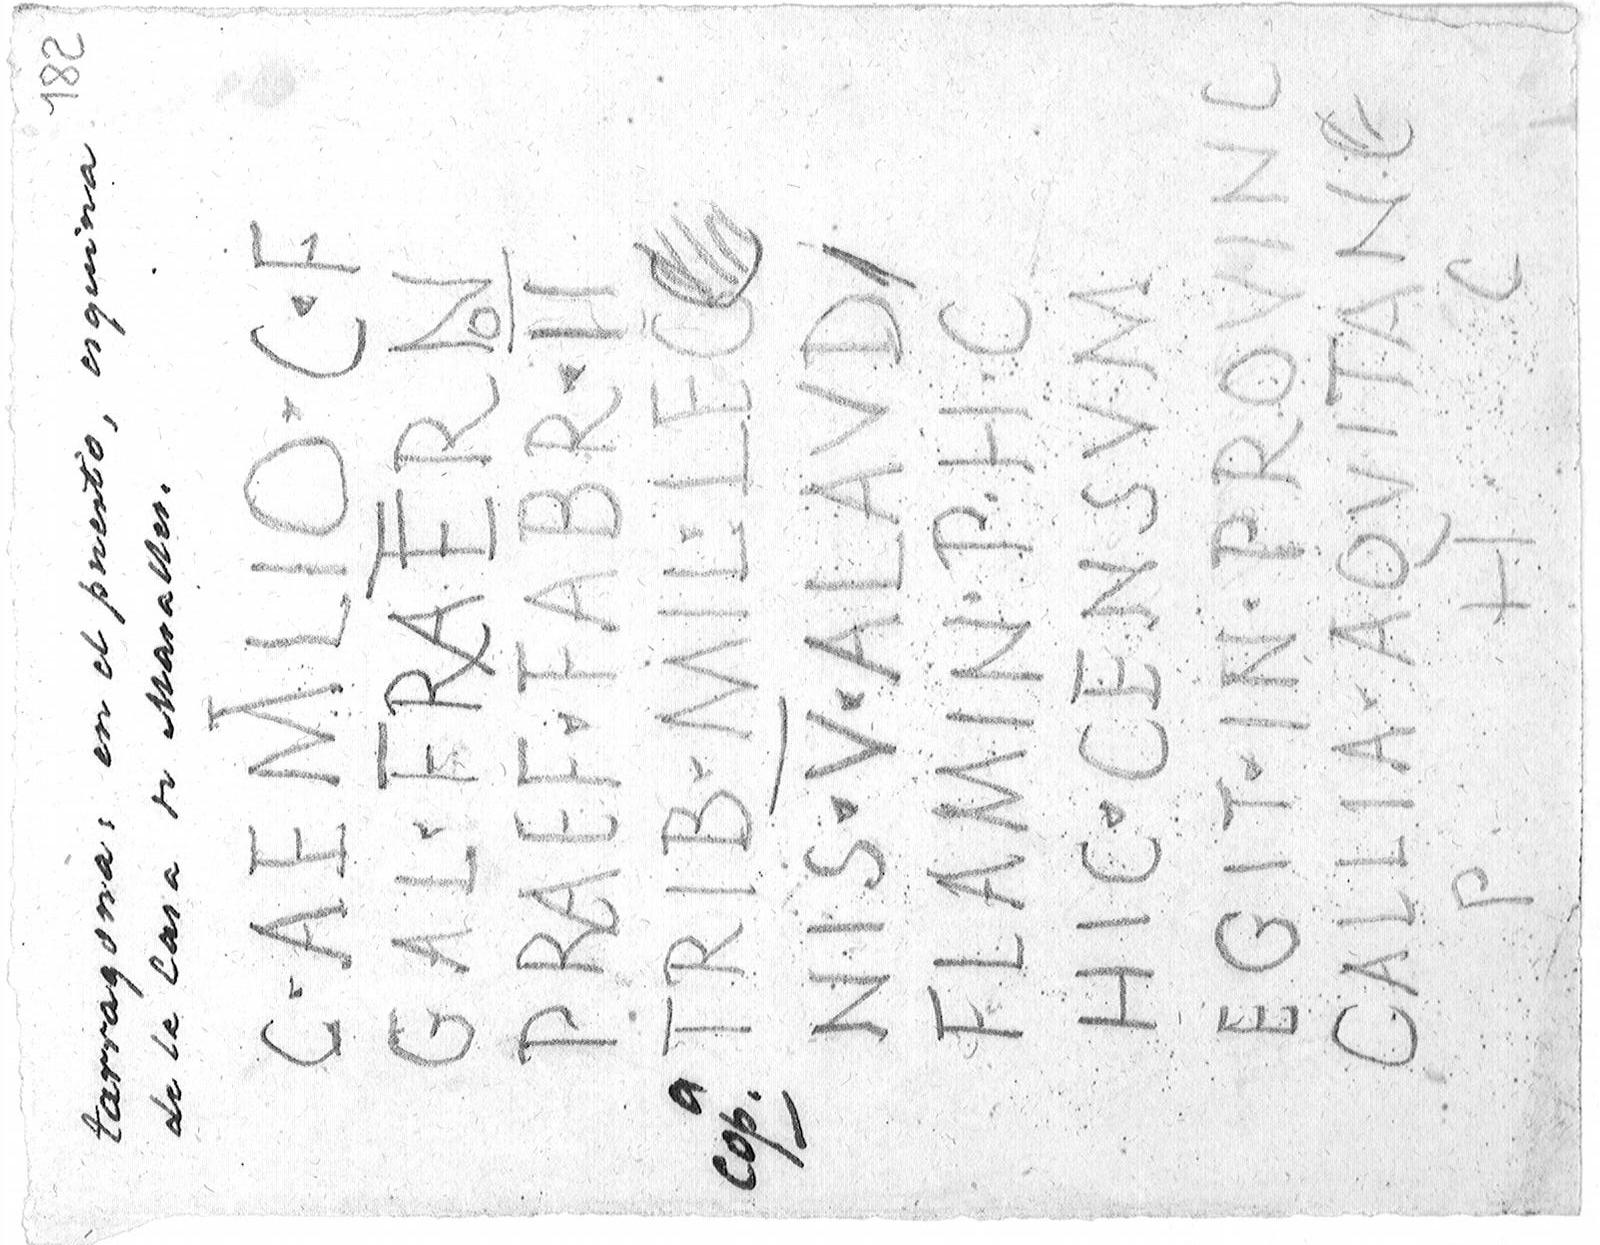 182
tarragona: en el puesto, esquina
de la Casa de Maralles.
C·AEMILIO·C·F
GAL·FRATERNO
PRAEF·FABR·H
TRIB·MIL·LEG
NIS·V·ALAVD
FLAMIN·P·H·C
HIC·CENSVM
EGIT·IN·PROVINC
CALLIA·AQVITANC
P H C
Cop.a